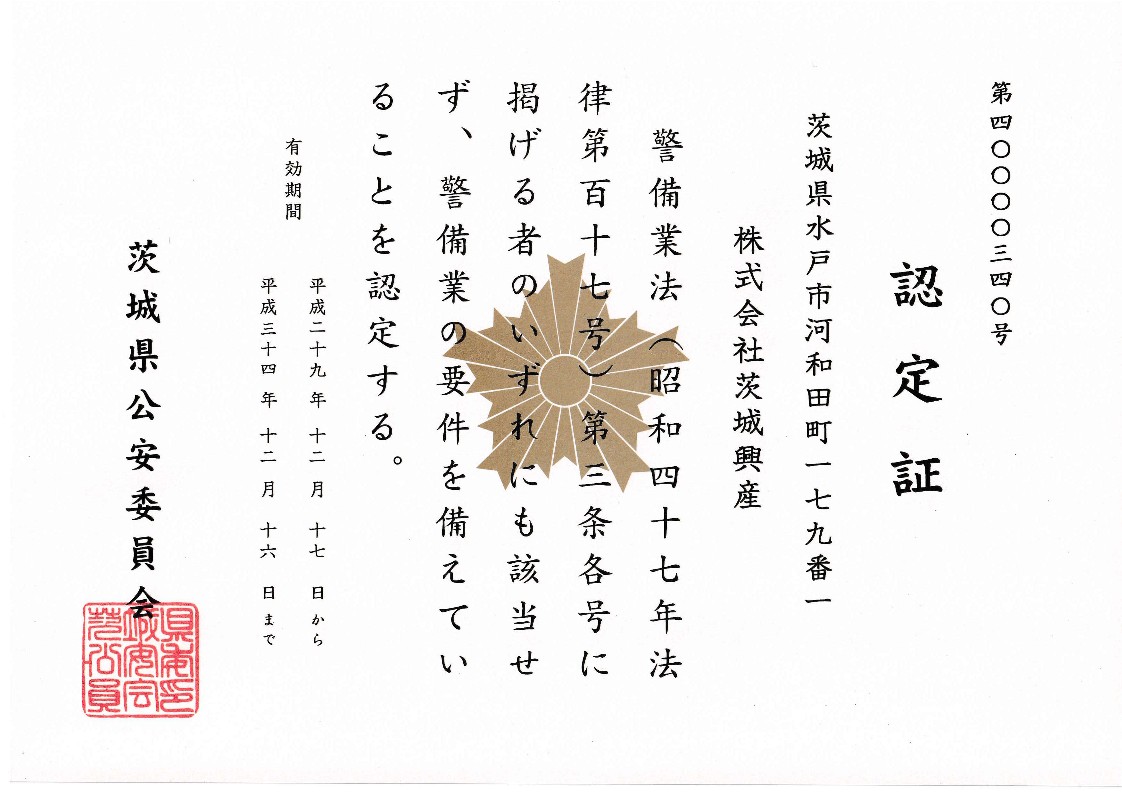 第四〇〇〇〇三四〇号
認定証
茨城県水戸市河和田町一七九番一
株式会社茨城興産
警備業法（昭和四十七年法
律第百十七号）第三条各号に
掲げる者のいずれにも該当せ
ず、警備業の要件を備えてい
ることを認定する。
有効期間
平成二十九年 十二月 十七 日から
平成三十四年 十二月 十六 日まで
茨城県公安委員会